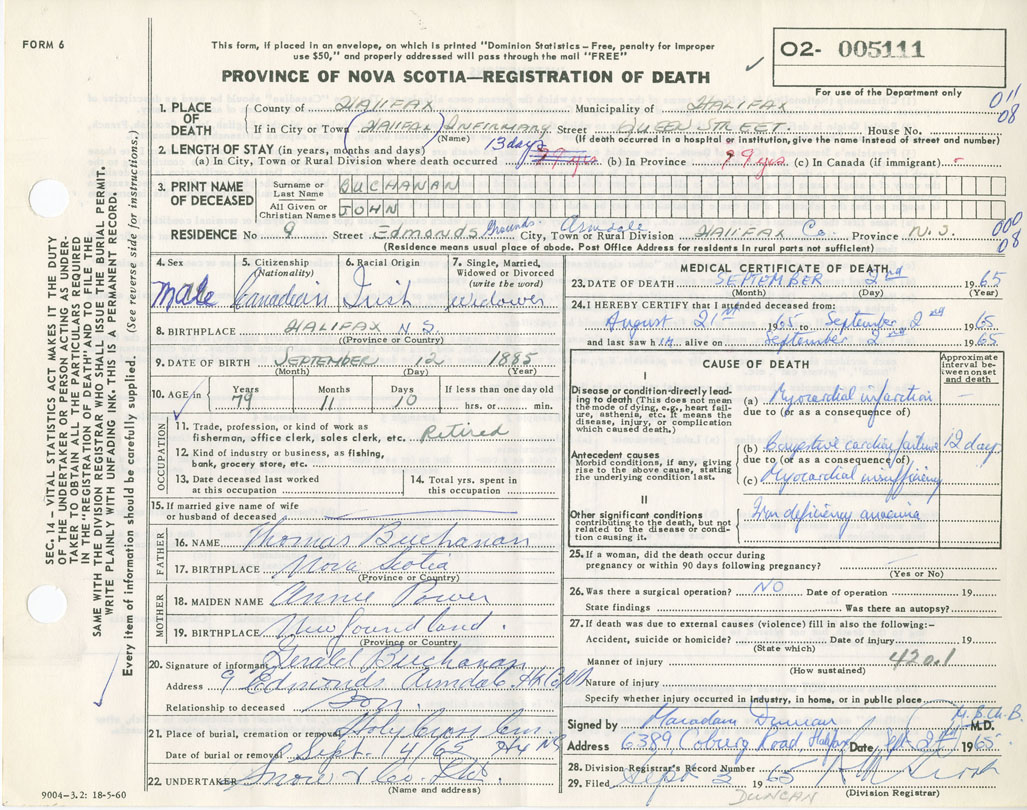 FORM 6
This form, if placed in an envelope, on which is printed "Dominion Statistics—Free, penalty for improper
use $50," and properly addressed will pass through the mail "FREE"
PROVINCE OF NOVA SCOTIA—REGISTRATION OF DEATH
02- 005111
For use of the Department only
011
08
1. PLACE OF DEATH
County of HALIFAX Municipality of HALIFAX
If in City or Town (HALIFAX) INFIRMARY Street QUEEN STREET. House No.
(Name) (If death occurred in a hospital or institution, give the name instead of street and number)
2. LENGTH OF STAY (in years, months and days) 13 days
(a) In City, Town or Rural Division where death occurred 79 yrs. (b) In Province 79 yrs. (c) In Canada (if immigrant) -
3. PRINT NAME OF DECEASED
Surname or Last Name BUCHANAN
All Given or Christian Names JOHN
RESIDENCE No 9 Street Edmonds Grounds. City, Town or Rural Division Armdale HALIFAX Co. Province N.S.
(Residence means usual place of abode. Post Office Address for residents in rural parts not sufficient)
000
08
4. Sex
male
5. Citizenship (Nationality)
Canadian
6. Racial Origin
Irish
7. Single, Married, Widowed or Divorced (write the word)
widower
8. BIRTHPLACE HALIFAX N.S.
(Province or Country)
9. DATE OF BIRTH SEPTEMBER 12 1885
(Month) (Day) (Year)
10. AGE in
Years 79
Months 11
Days 10
If less than one day old
hrs. or min.
OCCUPATION
11. Trade, profession, or kind of work as
fisherman, office clerk, sales clerk, etc. Retired
12. Kind of industry or business, as fishing,
bank, grocery store, etc.
13. Date deceased last worked
at this occupation
14. Total yrs. spent in
this occupation
15. If married give name of wife
or husband of deceased
FATHER
16. NAME Thomas Buchanan
17. BIRTHPLACE Nova Scotia
(Province or Country)
MOTHER
18. MAIDEN NAME Annie Power
19. BIRTHPLACE Newfoundland.
(Province or Country)
20. Signature of informant Gerald Buchanan
Address 9 Edmonds Armdale Hx Co NS
Relationship to deceased Son.
21. Place of burial, cremation or removal Holy Cross Cem.
Date of burial or removal Sept. 4/65 Hx NS
22. UNDERTAKER Snow & Co. Ltd.
(Name and address)
MEDICAL CERTIFICATE OF DEATH
23. DATE OF DEATH SEPTEMBER 2nd 1965
(Month) (Day) (Year)
24. I HEREBY CERTIFY that I attended deceased from:
August 21st 1965 to September 2nd 1965
and last saw him alive on September 2nd 1965.
CAUSE OF DEATH
Approximate interval between onset and death
I
Disease or condition directly leading to death (This does not mean the mode of dying, e.g., heart failure, asthenia, etc. It means the disease, injury, or complication which caused death.)
(a) Myocardial infarction —
due to (or as a consequence of)
Antecedent causes
Morbid conditions, if any, giving rise to the above cause, stating the underlying condition last.
(b) Congestive cardiac failure 12 days
due to (or as a consequence of)
(c) Myocardial insufficiency
II
Other significant conditions
contributing to the death, but not related to the disease or condition causing it.
Iron deficiency anaemia
25. If a woman, did the death occur during
pregnancy or within 90 days following pregnancy?
(Yes or No)
26. Was there a surgical operation? NO Date of operation 19
State findings Was there an autopsy?
27. If death was due to external causes (violence) fill in also the following:-
Accident, suicide or homicide? Date of injury 19
(State which)
Manner of injury 420.1
(How sustained)
Nature of injury
Specify whether injury occurred in industry, in home, or in public place
Signed by Macadam Duncan M.B. Ch.B. M.D.
Address 6389 Coburg Road Halifax Date Sept. 2nd 1965
28. Division Registrar's Record Number
29. Filed Sept 3 1965
(Division Registrar)
DUNCAN
9004-3.2: 18-5-60
SEC. 14 - VITAL STATISTICS ACT MAKES IT THE DUTY
OF THE UNDERTAKER OR PERSON ACTING AS UNDER-
TAKER TO OBTAIN ALL THE PARTICULARS REQUIRED
IN THE "REGISTRATION OF DEATH" AND TO FILE THE
SAME WITH THE DIVISION REGISTRAR WHO SHALL ISSUE THE BURIAL PERMIT.
WRITE PLAINLY WITH UNFADING INK. THIS IS A PERMANENT RECORD.
Every item of information should be carefully supplied. (See reverse side for instructions.)